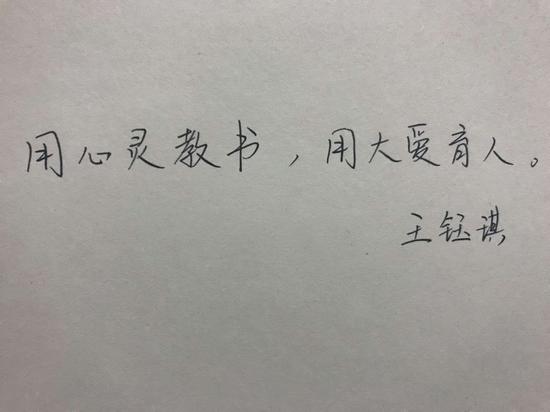 用心灵教书，用大爱育人。
王钰琪